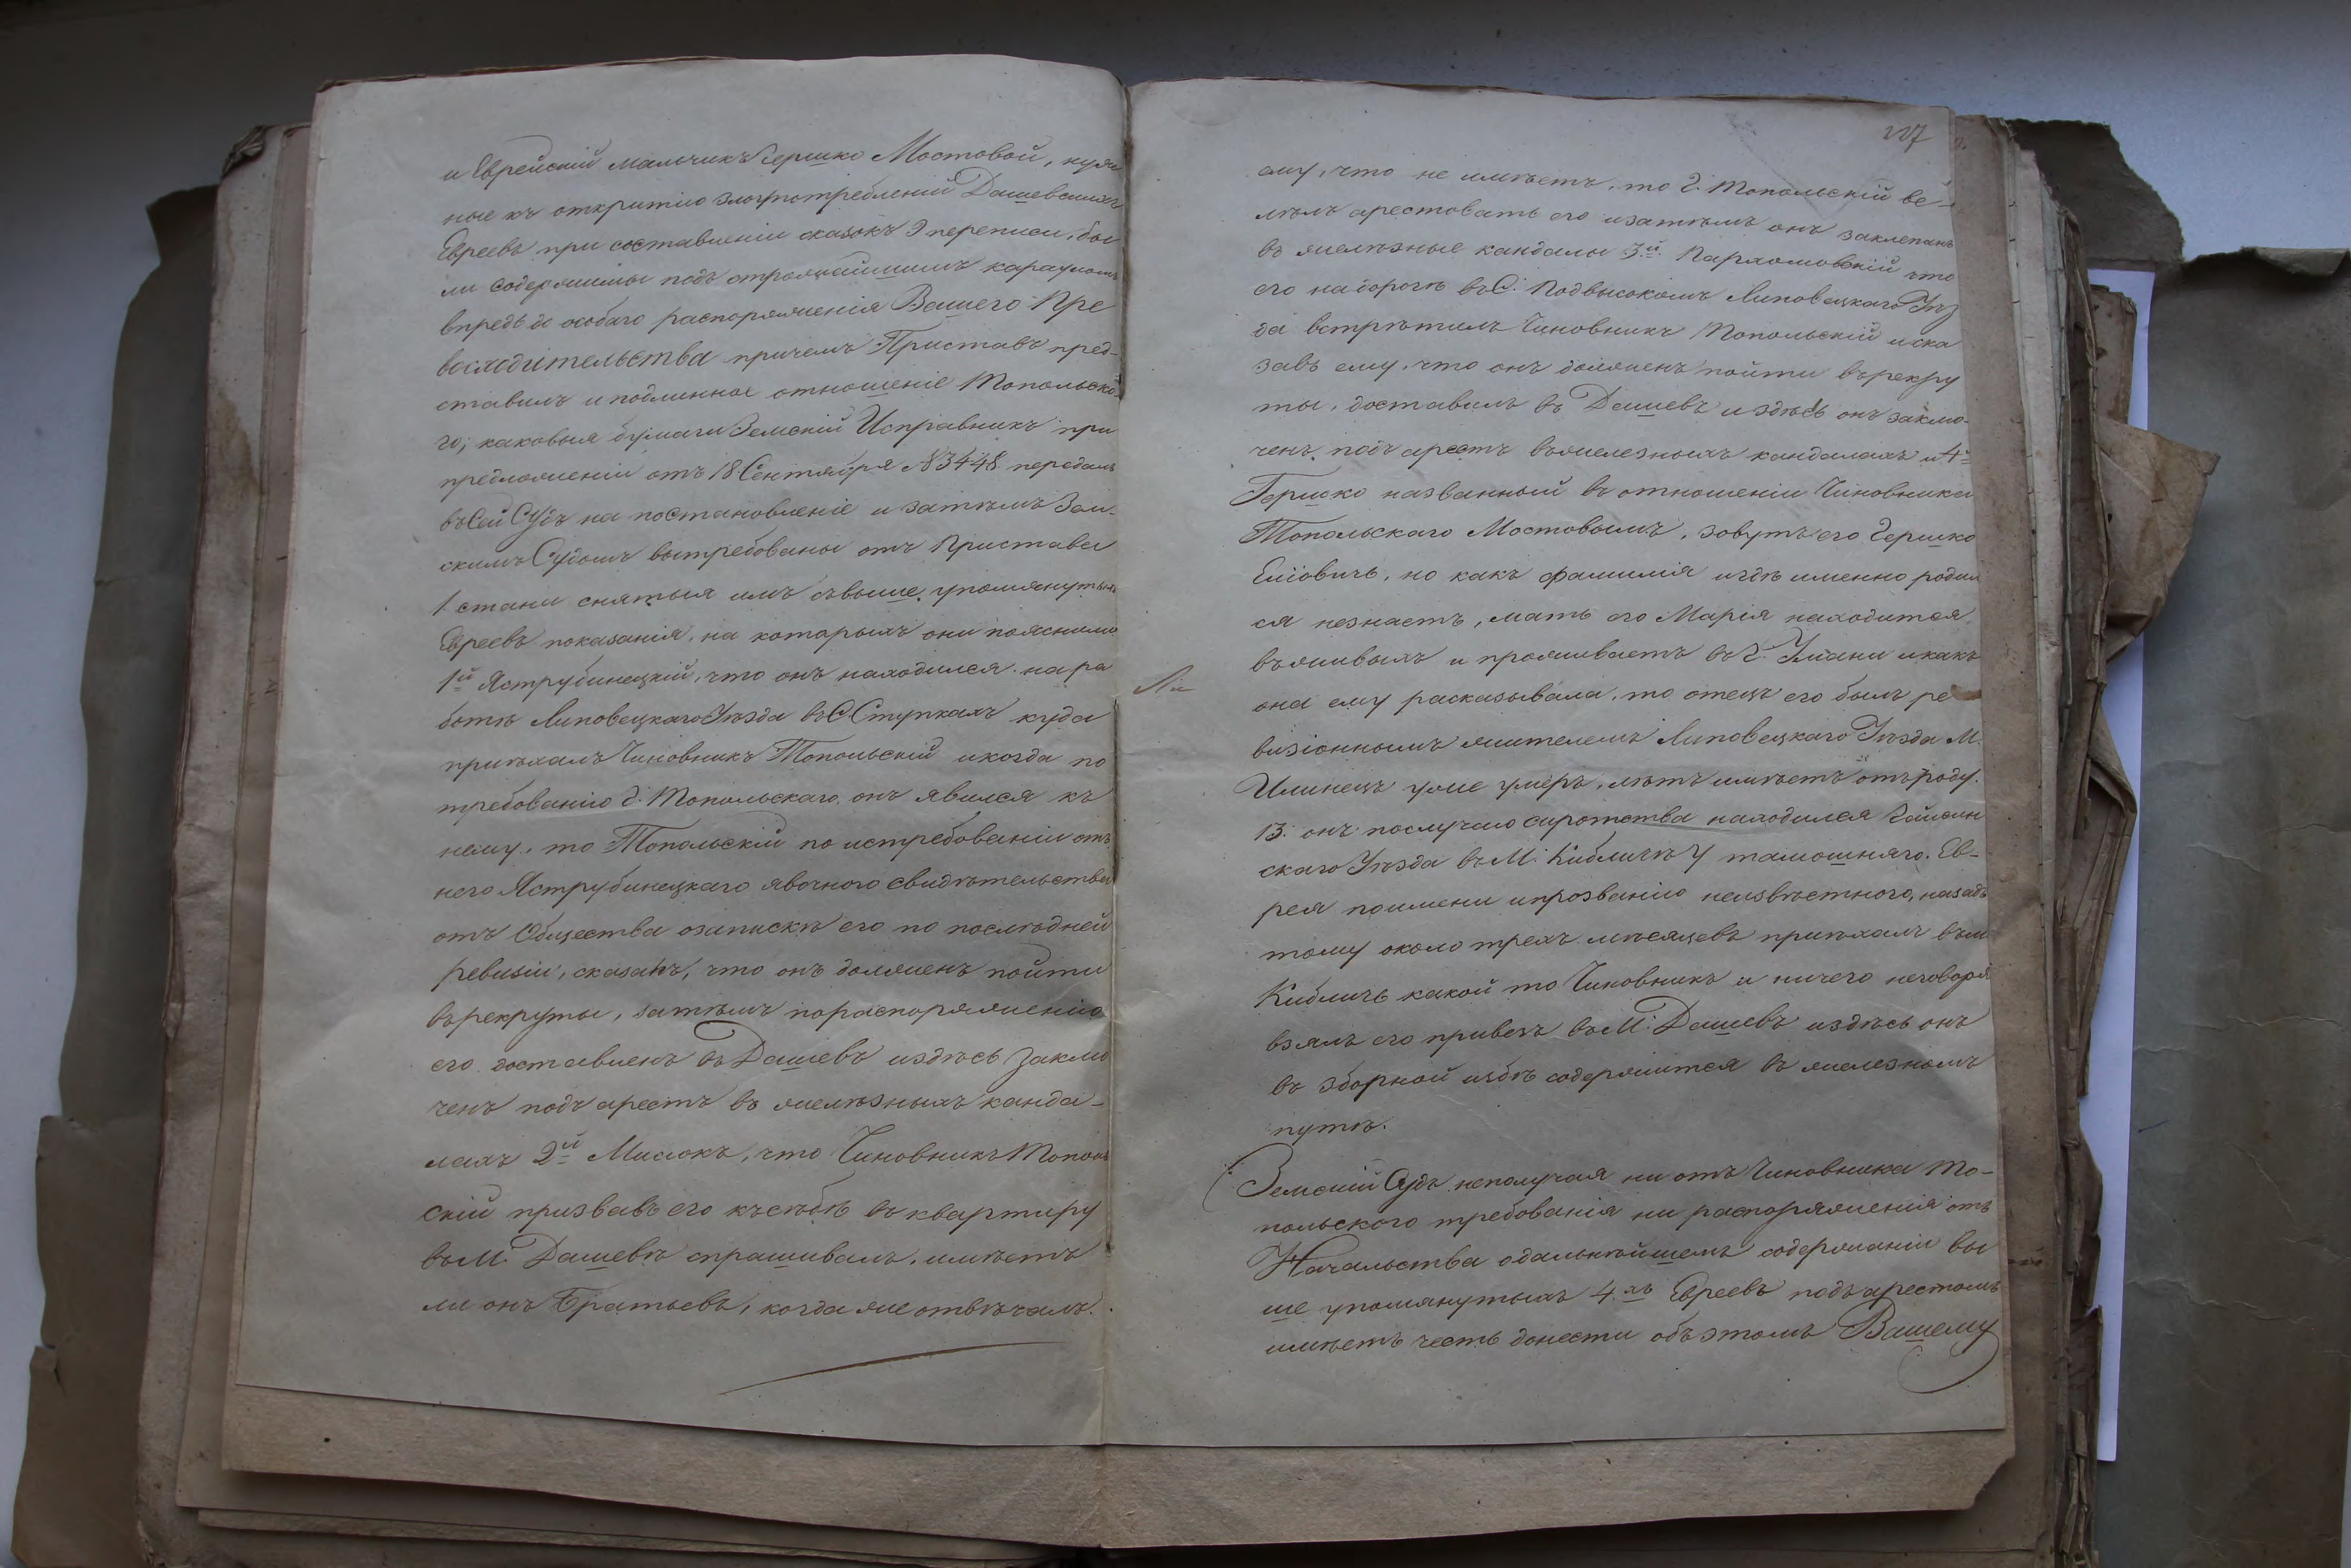 и Еврейскій мальчикъ Гершко Мостовой, нуж
ные къ открытію злоупотребленій Дашевскихъ
Евреевъ при составленіи сказокъ 9 переписи, бы
ли содержимы подъ строжайшимъ карауломъ
впредь до особаго распоряженія Вашего Пре
восходительства причемъ Приставъ пред-
ставилъ и подлинное отношеніе Топольска
го, каковыя бумаги Земскій Исправникъ при
предложеніи отъ 18 Сентября №3448 передалъ
въ сей Судъ на постановленіе и затѣмъ Зем-
скимъ Судомъ вытребованы отъ Пристава
1 стана снятыя имъ съ выше упомянутыхъ
Евреевъ показанія, на которыхъ они пояснили
1й Яструбинецкій, что онъ находился на ра
ботѣ Липовецкаго Уѣзда въ С Ступкахъ куда
пріѣхалъ Чиновникъ Топольскій и когда по
требованію г. Топольскаго, онъ явился къ
нему, то Топольскій по истребованіи отъ
него Яструбинецкаго явочного свидѣтельства
отъ Общества о запискѣ его по послѣдней
ревизіи, сказалъ, что онъ долженъ пойти
въ рекруты, затѣмъ по распоряженію
его доставленъ въ Дашевъ и здѣсь заклю
ченъ подъ арестъ въ желѣзныхъ канда-
лахъ 2й Мислокъ, что Чиновникъ Тополь
скій призвавъ его къ себѣ въ квартиру
въ М. Дашевѣ спрашивалъ, имѣетъ
ли онъ Братьевъ, когда же отвѣчалъ
227
ему, что не имѣетъ, то г. Топольскій ве-
лѣлъ арестовать его и затѣмъ онъ заклепанъ
въ желѣзные кандалы 3й Пархомовскій что
его на дорогѣ въ С. Подвысокомъ Липовецкаго Уѣз
да встрѣтилъ Чиновникъ Топольскій и ска
завъ ему, что онъ долженъ пойти въ рекру
ты, доставилъ въ Дашевъ и здѣсь онъ заклю-
ченъ подъ арестъ въ железныхъ кандалахъ и 4й
Гершко названный въ отношеніи Чиновника
Топольскаго Мостовымъ, зовутъ его Гершко
Еліовичъ, но какъ фамилія и гдѣ именно родил
ся незнаетъ, мать его Марія находится
въ живыхъ и проживаетъ въ г. Умани и какъ
она ему расказывала, то отецъ его былъ ре
визіоннымъ жителемъ Липовецкаго Уѣзда М.
Илинецъ уже умеръ, лѣтъ имѣетъ отъ роду
13. онъ по случаю сиротства находился Гайсин
скаго Уѣзда въ М. Кибличѣ у тамошняго Ев-
рея по имени и прозванію неизвѣстного, назадъ
тому около трехъ мѣсяцевъ пріѣхалъ въ м
Кибличъ какой то Чиновникъ и ничего неговоря
взялъ его привезъ въ М. Дашевъ и здѣсь онъ
въ зборной избѣ содержится въ железномъ
путѣ.
Земскій Судъ неполучая ни отъ Чиновника То-
польского требованія ни распоряженія отъ
Начальства о дальнѣйшемъ содержаніи вы
ше упомянутыхъ 4хъ Евреевъ подъ арестомъ
имѣетъ честь донести объ этомъ Вашему